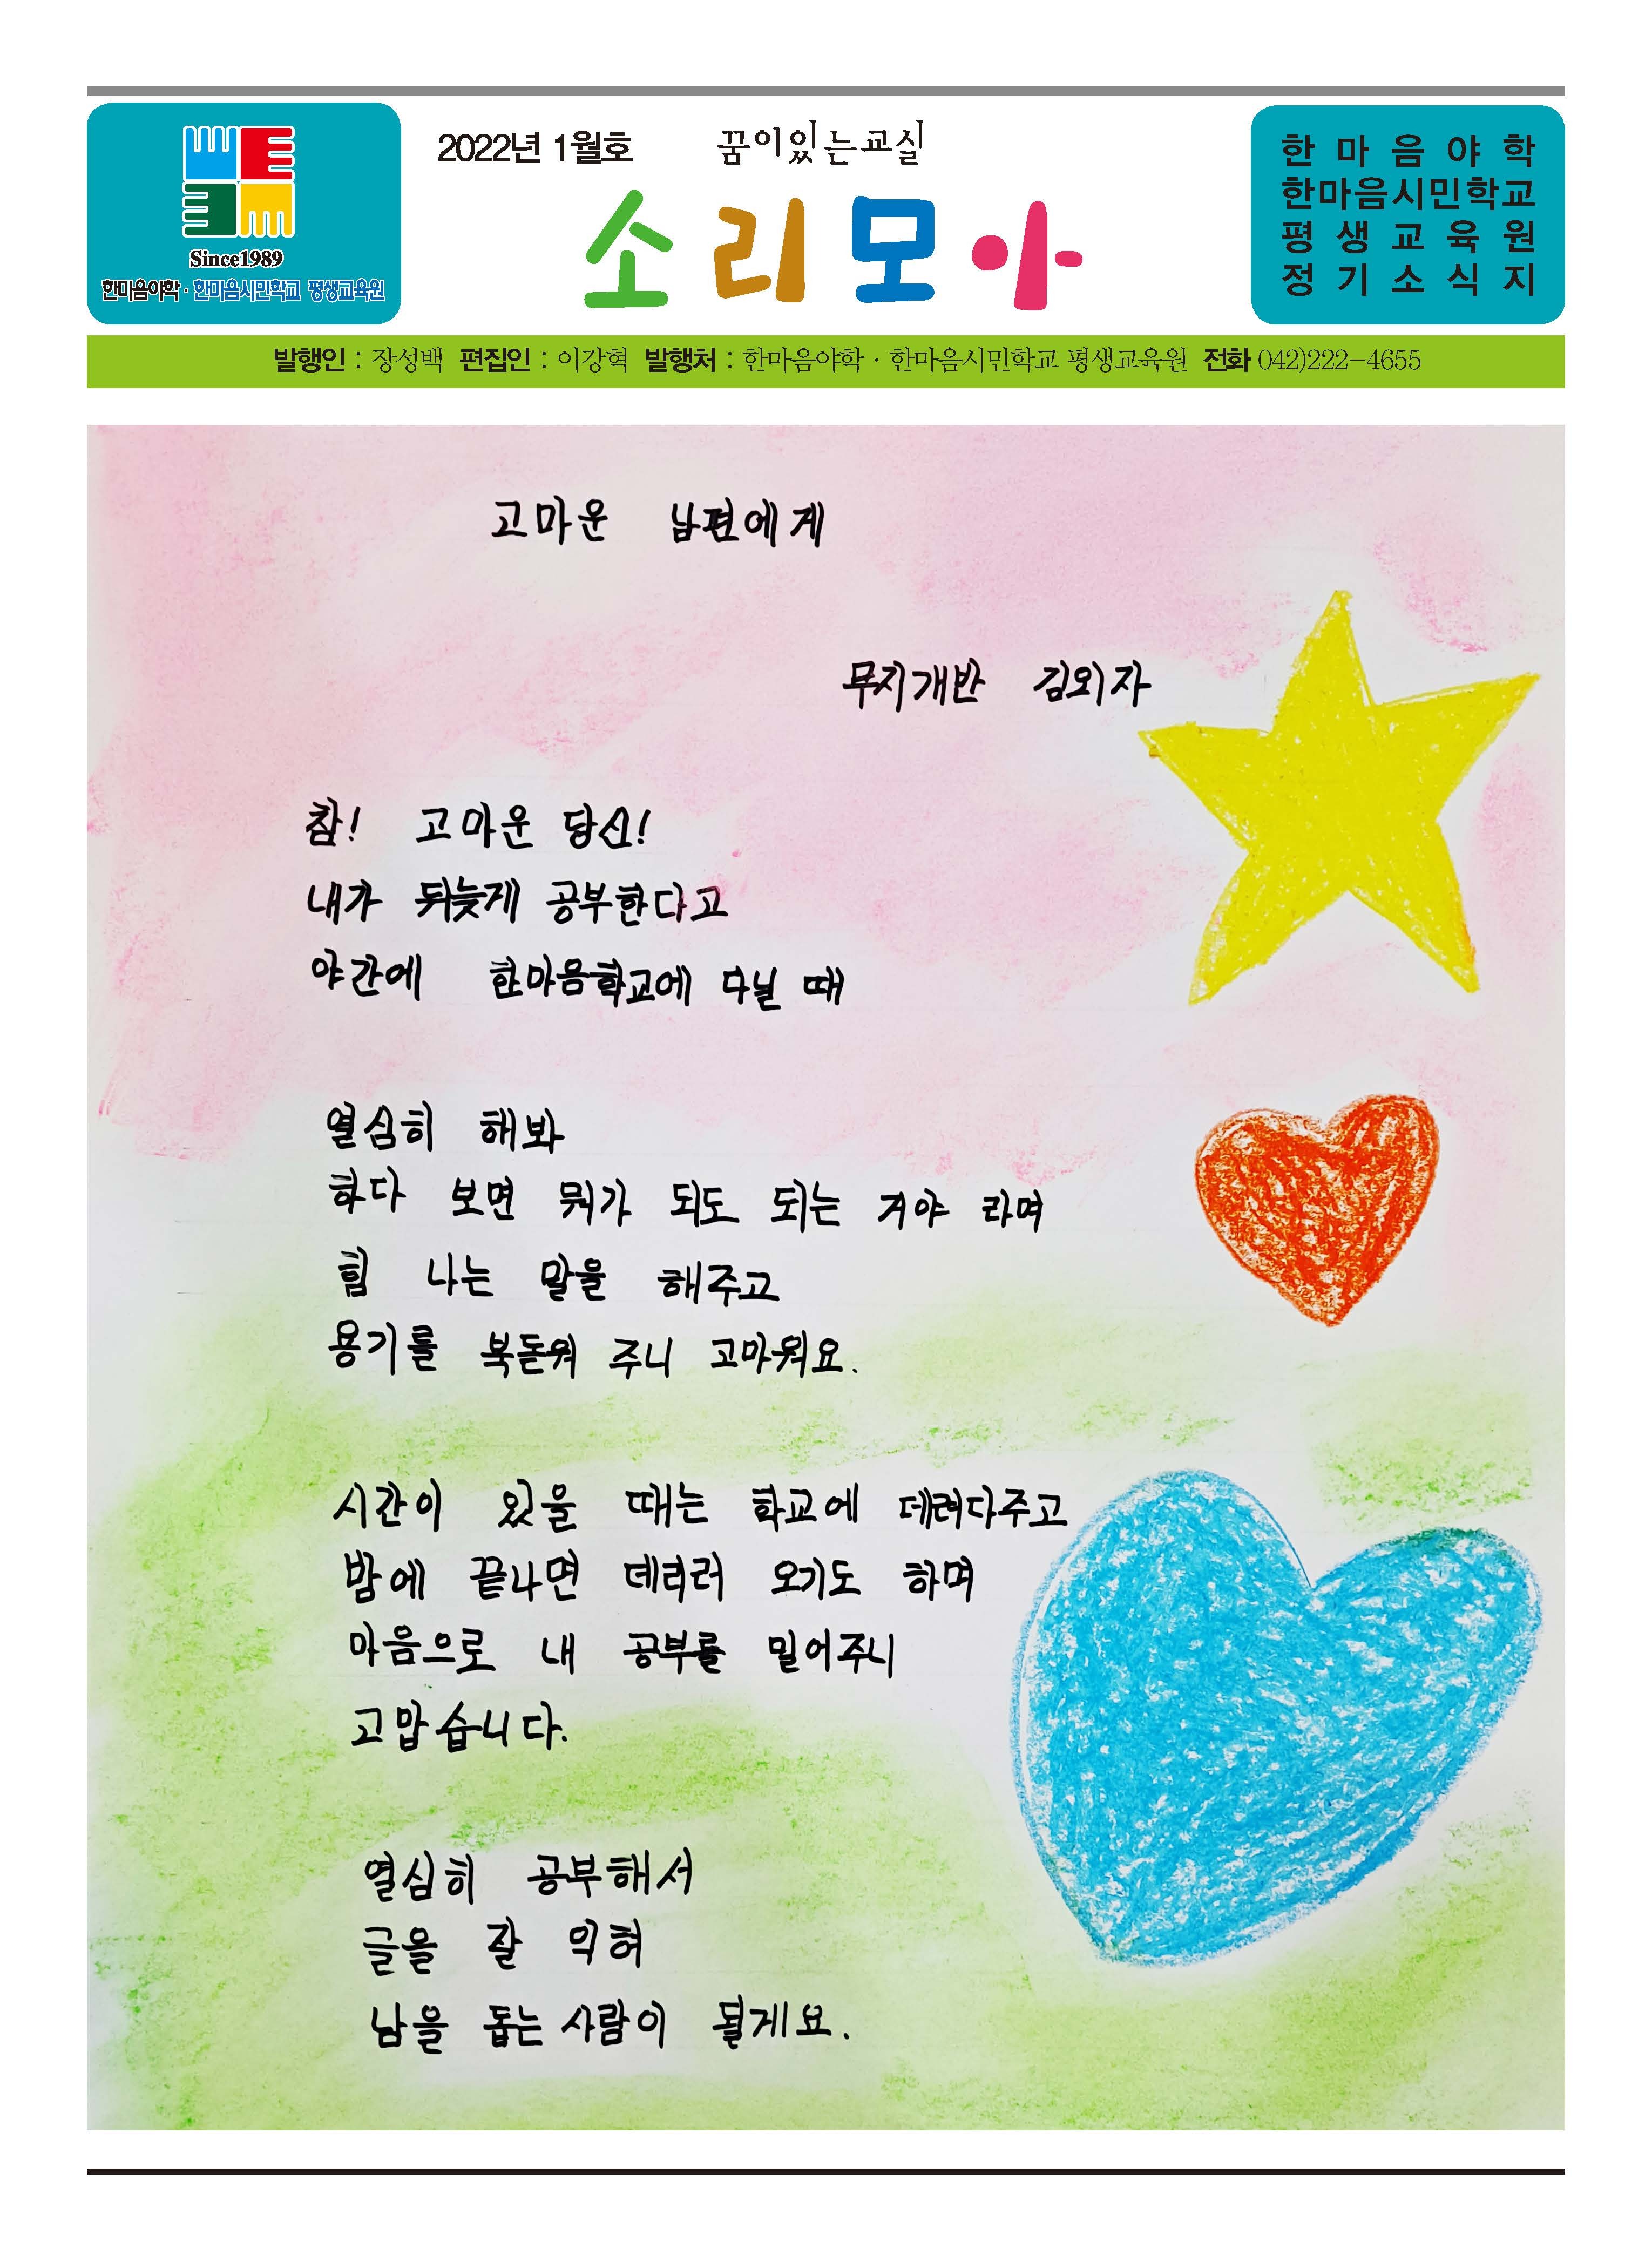 2022년 1월호
꿈이있는교실
소리모아
Since1989
한마음야학·한마음시민학교 평생교육원
한마음야학
한마음시민학교
평생교육원
정기소식지
발행인 : 장성백 편집인 : 이강혁 발행처 : 한마음야학·한마음시민학교 평생교육원 전화 042)222-4655
고마운 남편에게
무지개반 김외자
참! 고마운 당신!
내가 뒤늦게 공부한다고
야간에 한마음학교에 다닐 때
열심히 해봐
하다 보면 뭐가 되도 되는 거야 라며
힘 나는 말을 해주고
용기를 북돋워 주니 고마워요.
시간이 있을 때는 학교에 데려다주고
밤에 끝나면 데리러 오기도 하며
마음으로 내 공부를 밀어주니
고맙습니다.
열심히 공부해서
글을 잘 익혀
남을 돕는 사람이 될게요.